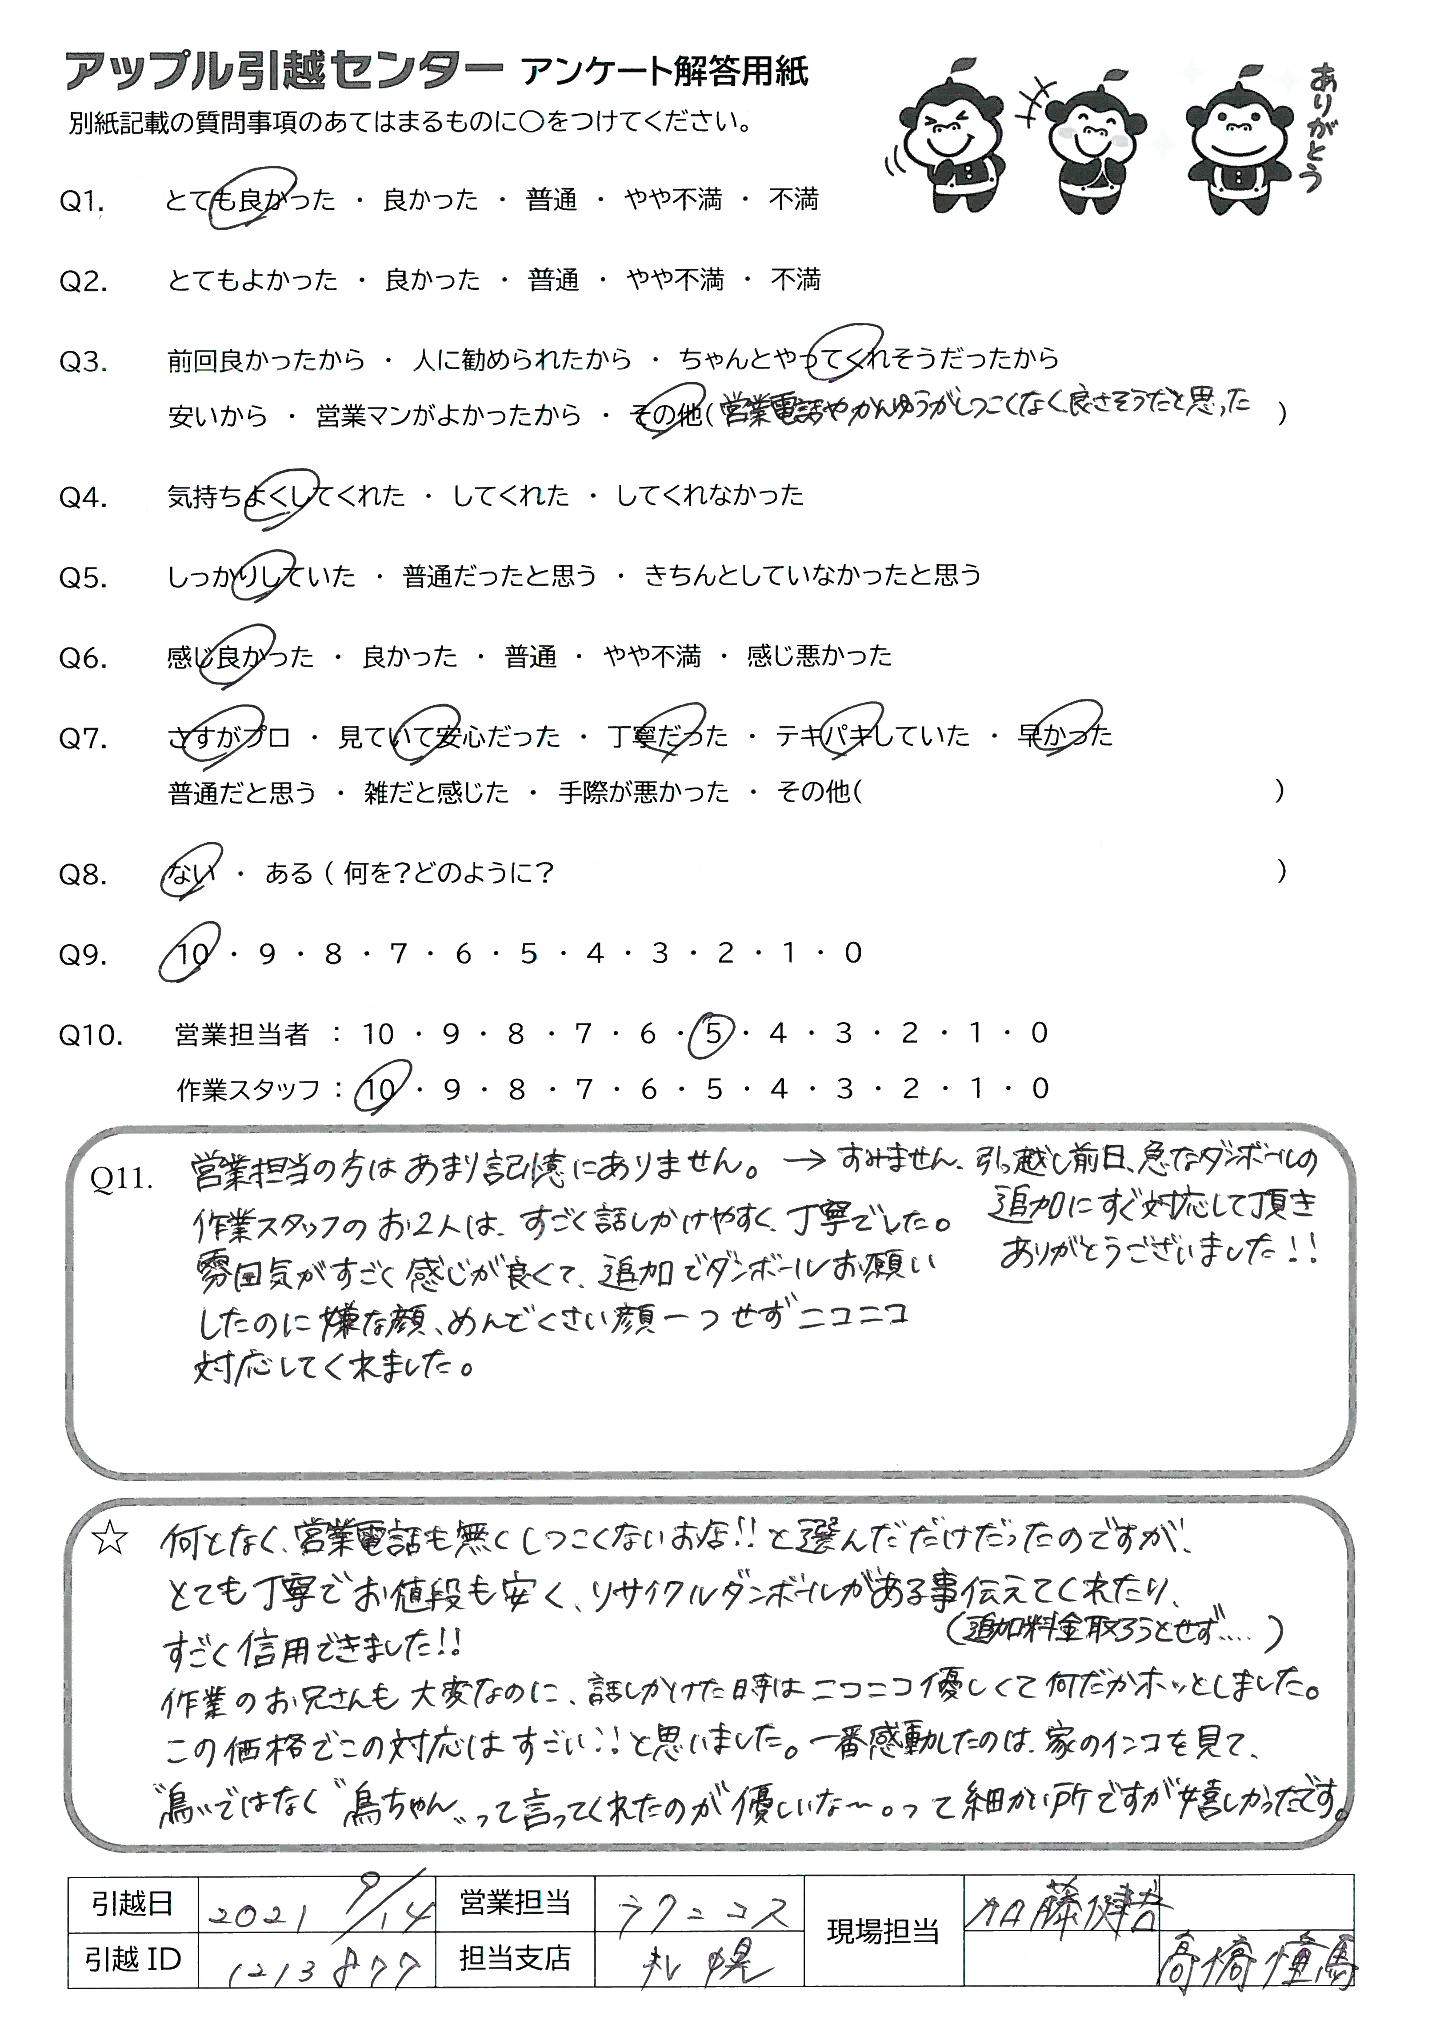 アップル引越センター アンケート解答用紙
別紙記載の質問事項のあてはまるものに○をつけてください。
ありがとう
Q1. とても良かった ・ 良かった ・ 普通 ・ やや不満 ・ 不満
Q2. とてもよかった ・ 良かった ・ 普通 ・ やや不満 ・ 不満
Q3. 前回良かったから ・ 人に勧められたから ・ ちゃんとやってくれそうだったから
安いから ・ 営業マンがよかったから ・ その他( 営業電話やかんゆうがしつこくなく良さそうだと思った )
Q4. 気持ちよくしてくれた ・ してくれた ・ してくれなかった
Q5. しっかりしていた ・ 普通だったと思う ・ きちんとしていなかったと思う
Q6. 感じ良かった ・ 良かった ・ 普通 ・ やや不満 ・ 感じ悪かった
Q7. さすがプロ ・ 見ていて安心だった ・ 丁寧だった ・ テキパキしていた ・ 早かった
普通だと思う ・ 雑だと感じた ・ 手際が悪かった ・ その他( )
Q8. ない ・ ある ( 何を?どのように? )
Q9. 10 ・ 9 ・ 8 ・ 7 ・ 6 ・ 5 ・ 4 ・ 3 ・ 2 ・ 1 ・ 0
Q10. 営業担当者 : 10 ・ 9 ・ 8 ・ 7 ・ 6 ・ 5 ・ 4 ・ 3 ・ 2 ・ 1 ・ 0
作業スタッフ : 10 ・ 9 ・ 8 ・ 7 ・ 6 ・ 5 ・ 4 ・ 3 ・ 2 ・ 1 ・ 0
Q11. 営業担当の方はあまり記憶にありません。→すみません、引っ越し前日、急なダンボールの
追加にすぐ対応して頂き
ありがとうございました!!
作業スタッフのお2人は、すごく話しかけやすく、丁寧でした。
雰囲気がすごく感じが良くて、追加でダンボールお願い
したのに嫌な顔、めんどくさい顔一つせずニコニコ
対応してくれました。
☆ 何となく、営業電話も無くしつこくないお店!!と選んだだけだったのですが、
とても丁寧でお値段も安く、リサイクルダンボールがある事伝えてくれたり、
(追加料金取ろうとせず....)
すごく信用できました!!
作業のお兄さんも大変なのに、話しかけた時はニコニコ優しくて何だかホッとしました。
この価格でこの対応はすごい!!と思いました。一番感動したのは、家のインコを見て、
"鳥"ではなく"鳥ちゃん"って言ってくれたのが優しいな〜。って細かい所ですが嬉しかったです。
引越日 2021 9/14 営業担当 ラクニコス 現場担当 加藤健吾
引越ID 1213877 担当支店 札幌 高橋憧馬